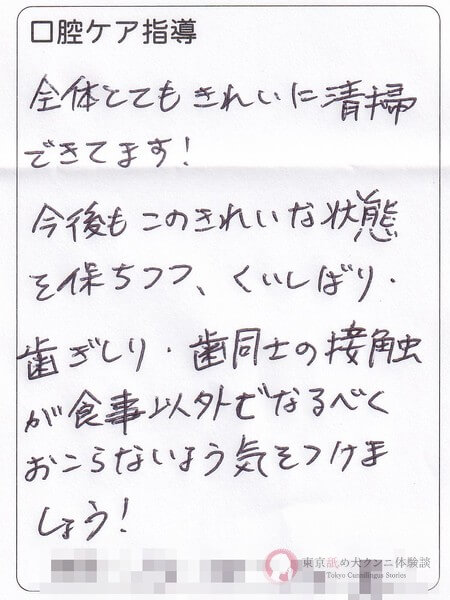 口腔ケア指導
全体とてもきれいに清掃
できてます！
今後もこのきれいな状態
を保ちつつ、くいしばり・
歯ぎしり・歯同士の接触
が食事以外でなるべく
おこらないよう気をつけま
しょう！
東京舐め犬クンニ体験談
Tokyo Cunnilingus Stories